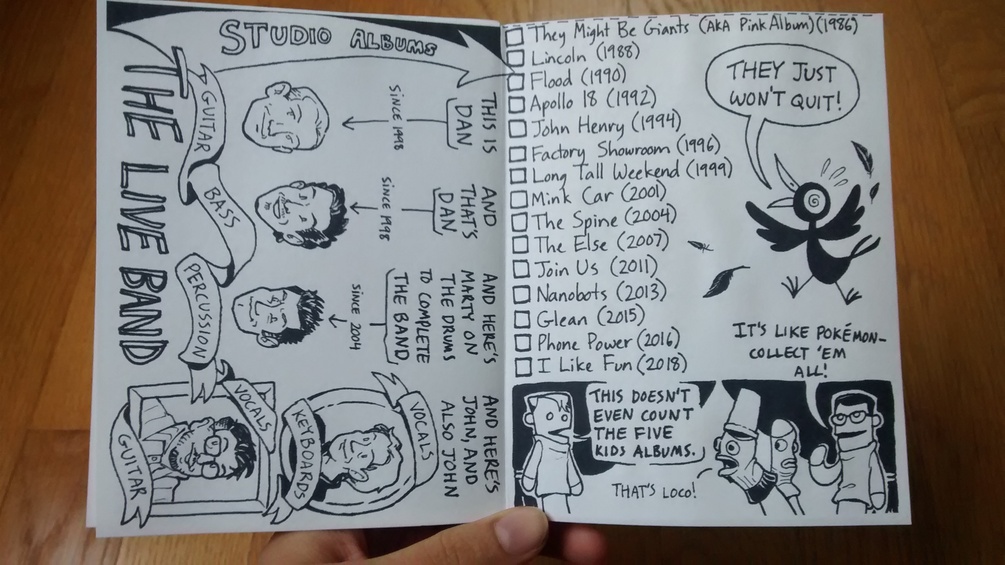 STUDIO ALBUMS
THE LIVE BAND
GUITAR
BASS
PERCUSSION
THIS IS
DAN
SINCE 1998
AND
THAT'S
DAN
SINCE 1998
AND HERE'S
MARTY ON
THE DRUMS
TO COMPLETE
THE BAND,
SINCE 2004
AND HERE'S
JOHN, AND
ALSO JOHN
VOCALS
KEYBOARDS
VOCALS
GUITAR
They Might Be Giants (AKA Pink Album) (1986)
Lincoln (1988)
Flood (1990)
Apollo 18 (1992)
John Henry (1994)
Factory Showroom (1996)
Long Tall Weekend (1999)
Mink Car (2001)
The Spine (2004)
The Else (2007)
Join Us (2011)
Nanobots (2013)
Glean (2015)
Phone Power (2016)
I Like Fun (2018)
THEY JUST
WON'T QUIT!
IT'S LIKE POKÉMON-
COLLECT 'EM
ALL!
THIS DOESN'T
EVEN COUNT
THE FIVE
KIDS ALBUMS.
THAT'S LOCO!